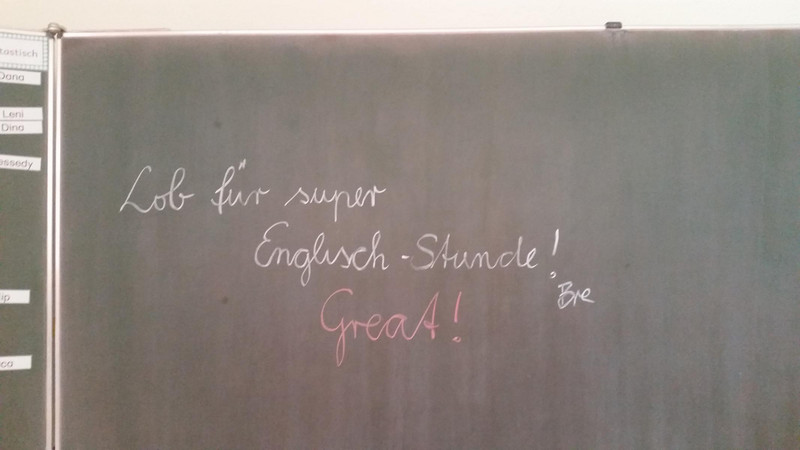 tastisch
Dana
Leni
Dina
essedy
ip
ca
Lob für super
Englisch-Stunde!
Bre
Great!